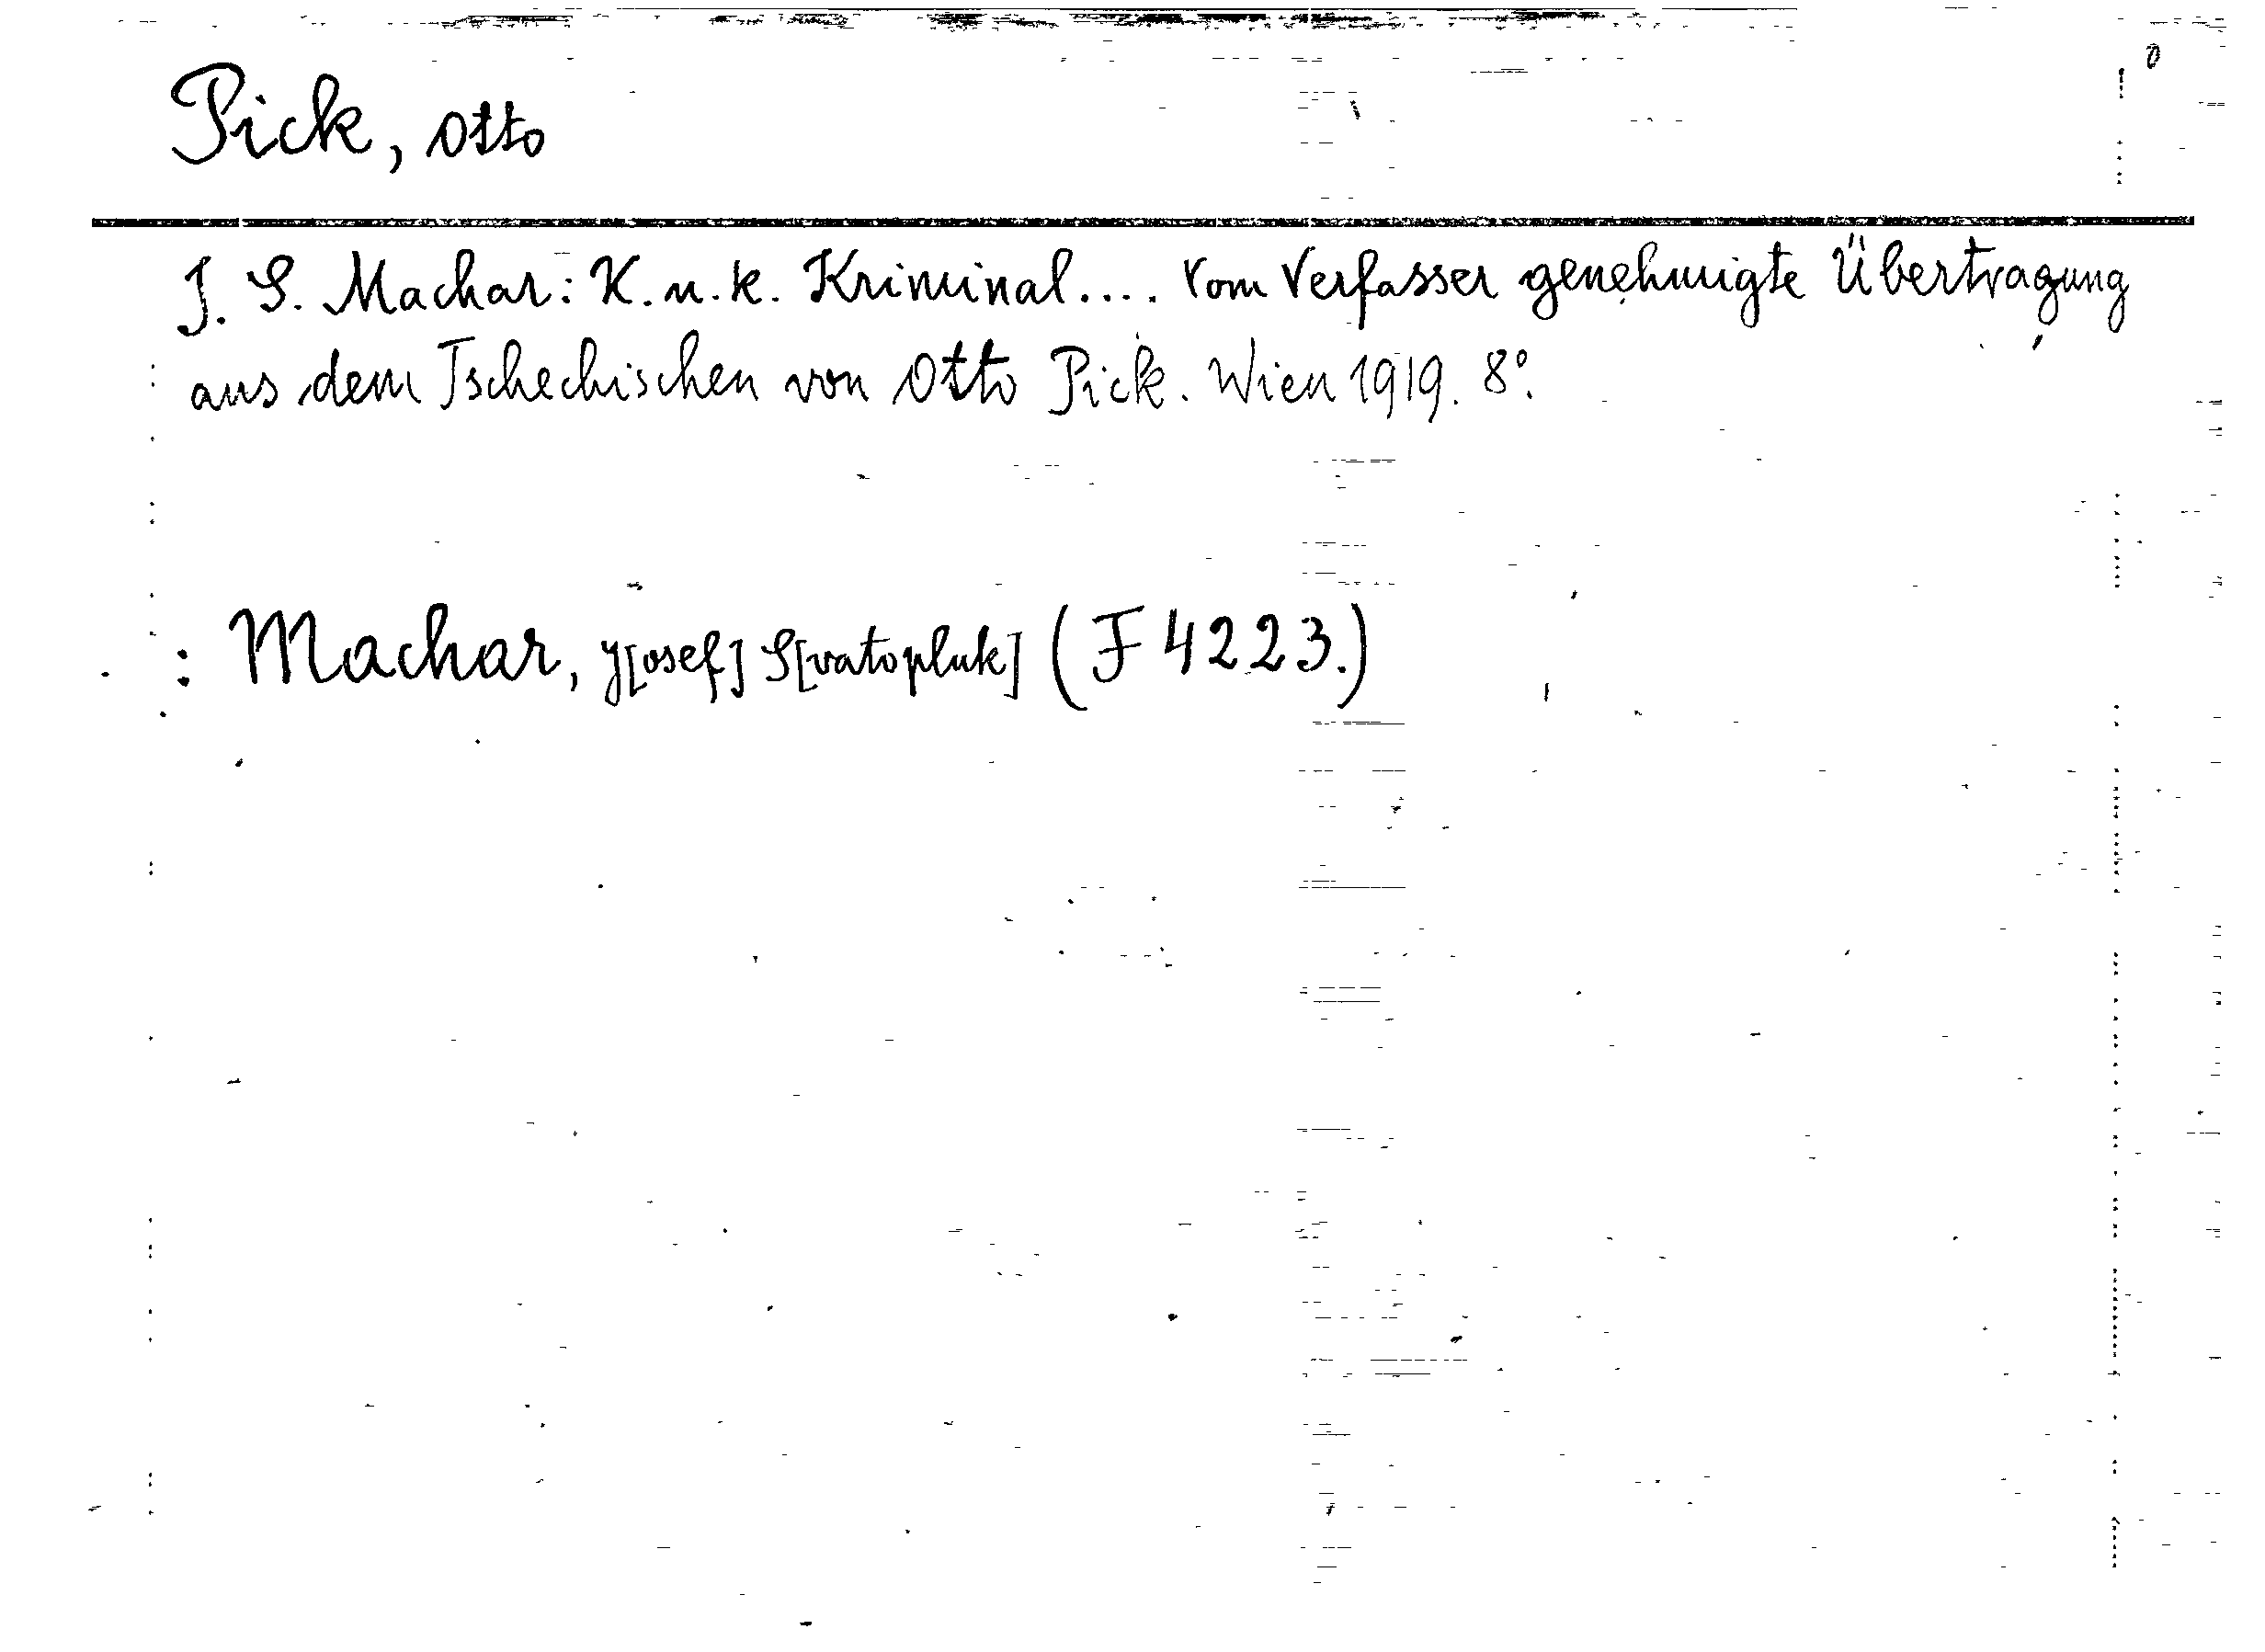 Pick, Otto
J. S. Machar: K. u. k. Kriminal.... Vom Verfasser genehmigte Übertragung
aus dem Tschechischen von Otto Pick. Wien 1919. 8°.
: Machar, J[osef] S[vatopluk] (F 4223.)